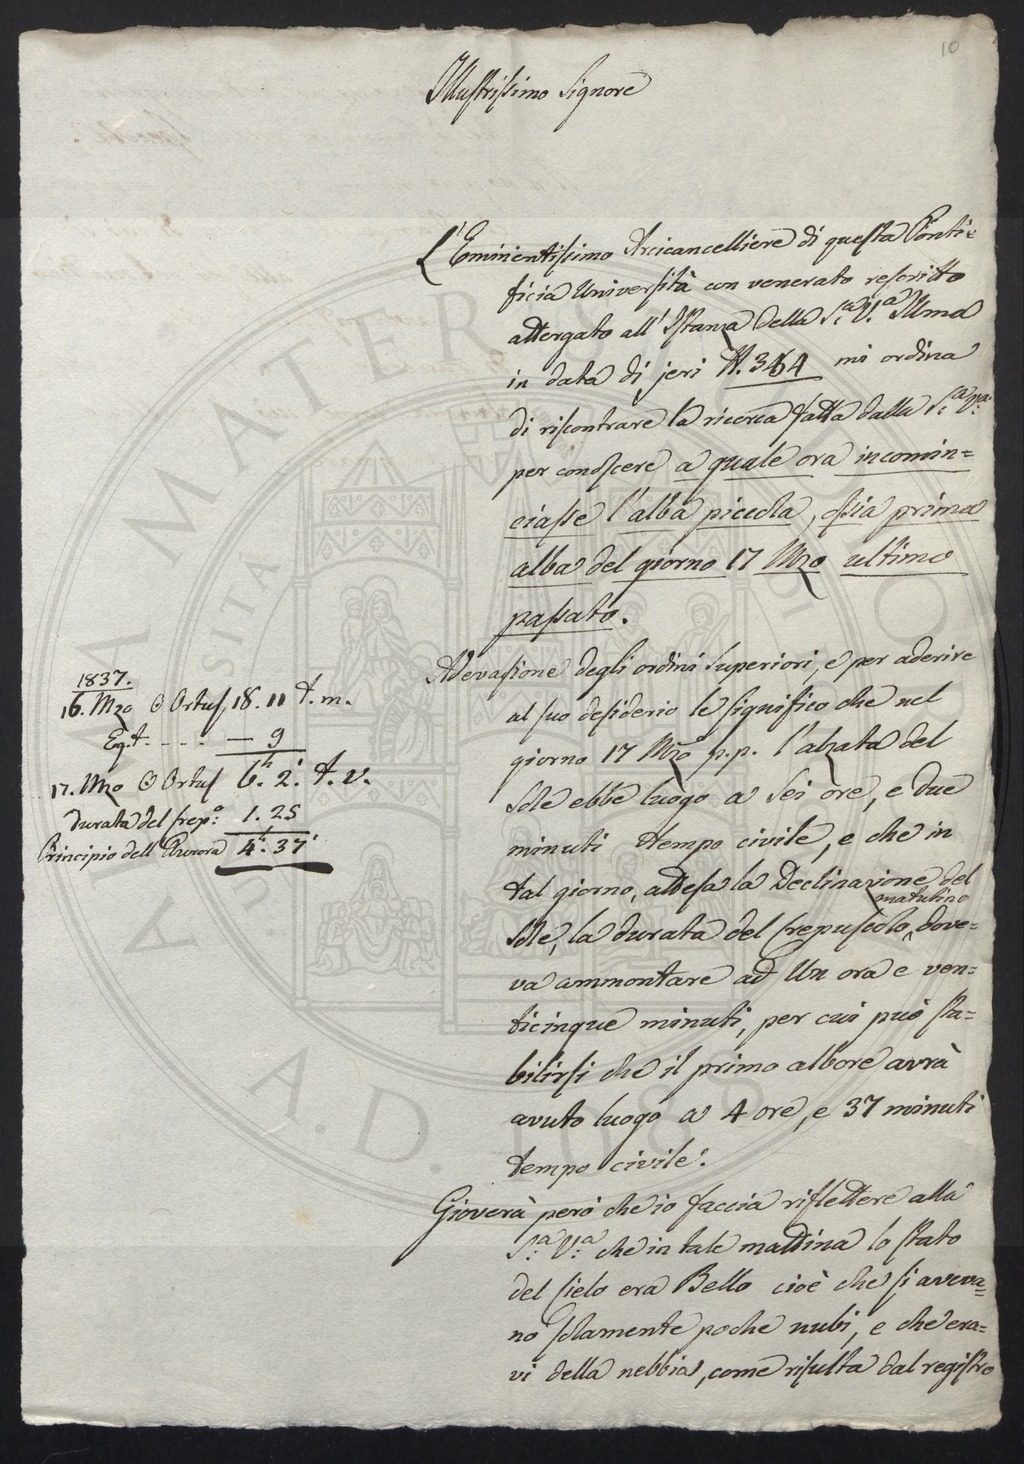 10
Illustrissimo Signore
L'Eminentissimo Arcicancelliere di questa Ponti=
ficia Università con venerato rescritto
attergato all'Istanza della S.a V.a Illma
in data di jeri N. 364 mi ordina
di riscontrare la ricerca fatta dalla S.a V.a
per conoscere a quale ora incomin=
ciasse l'alba piccola, ossia prima
alba del giorno 17 Mzo ultimo
passato.
Ad evasione degli ordini superiori, e per aderire
al suo desiderio le significo che nel
giorno 17 Mzo p.p. l'alzata del
Sole ebbe luogo a Sei ore, e due
minuti tempo civile, e che in
tal giorno, attesa la Declinazione del
Sole, la durata del Crepuscolo matutino dove=
va ammontare ad Un ora e ven=
ticinque minuti, per cui può sta=
bilirsi che il primo albore avrà
avuto luogo a 4 ore, e 37 minuti
tempo civile.
Gioverà però che io faccia riflettere alla
S.a V.a che in tale mattina lo stato
del Cielo era Bello cioè che si aveva=
no solamente poche nubi, e che era=
vi della nebbia, come risulta dal registro
1837.
16. Mzo ⊙ Ortus 18. 11 t. m.
Eq. t. - - - - — 9
17. Mzo ⊙ Ortus 6.h 2.' t. v.
Durata del Crep.o: 1. 25
Principio dell'Aurora 4.h 37'
ALMA MATER STUDIORUM
A.D. 1088